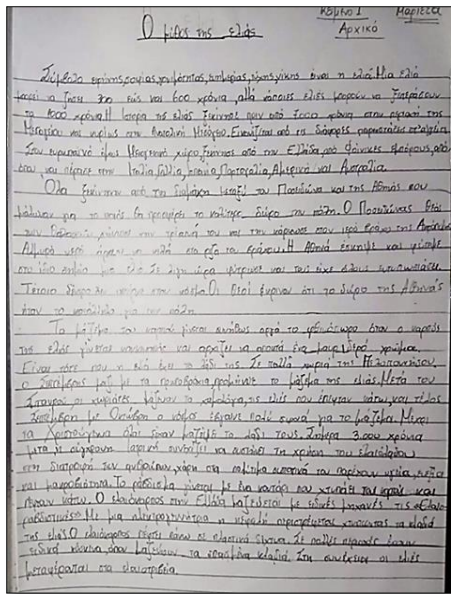 Κείμενο 1 Μαριέτα
Αρχικό
Ο μύθος της ελιάς
Σύμβολο ειρήνης, σοφίας, γονιμότητας, ευημερίας, τύχης, νίκης είναι η ελιά. Μια ελιά
μπορεί να ζήσει 300 εώς και 600 χρόνια, αλλά κάποιες ελιές μπορούν να ξεπεράσουν
τα 1000 χρόνια. Η ιστορία της ελιάς ξεκίνησε πριν από 7000 χρόνια στην περιοχή της
Μεσογείου και κυρίως στην Ανατολική Μεσόγειο. από τις διάφορες παραστάσεις
Στον ευρωπαϊκό όμως Μεσογειακό χώρο, ξεκίνησε από την Ελλάδα από Φοίνικες εμπόρους, από
όπου και πέρασε στην Ιταλία, Γαλλία, Ισπανία, Πορτογαλία, Αμερική και Αυστραλία.
Όλα ξεκίνησαν από τη διαμάχη μεταξύ του Ποσειδώνα και της Αθηνάς που
μάλωναν για το ποιός θα προσφέρει το καλύτερο δώρο στην πόλη. Ο Ποσειδώνας θεός
των θαλασσών, την τρίαινά του και την κάρφωσε στον ιερό βράχο της Ακρόπολης
Αλμυρό νερό άρχισε να κυλά στη ρίζα του βράχου. Η Αθηνά έσκυψε και φύτεψε
στο ίδιο σημείο μια ελιά. Σε λίγη ώρα φύτρωσε και τους είχε όλους εντυπωσιάσει.
Τέτοιο δέντρο δεν υπήρχε στον κόσμο. Οι θεοί έκριναν ότι το δώρο της Αθηνάς
ήταν το κατάλληλο για την πόλη.
Το μάζεμα του καρπού γίνεται συνήθως αργά το φθινόπωρο όταν ο καρπός
της ελιάς γίνεται και αρχίζει να αποκτά ένα μαύρο χρώμα.
Είναι τότε που η ελιά δίνει το λάδι της. Σε πολλά χωριά της Πελοποννήσου,
ο Σεπτέμβρης μαζί με τα πρωτοβρόχια, το μάζεμα της ελιάς. Μετά του
Σταυρού οι χωριάτες μάζευαν τα χαμολόγια, τις ελιές που έπεφταν κάτω, και τέλος
Σεπτέμβρη με Οκτώβρη ο κόσμος έβγαινε πολύ συχνά για το μάζεμα. Μέχρι
τα Χριστούγεννα όλοι είχαν μαζέψει το λάδι τους. Σήμερα 3.000 χρόνια
μετά η σύγχρονη ιατρική συνεχίζει να συστήνει τη χρήση του ελαιόλαδου
στη διατροφή των ανθρώπων, χάρη στα πολύτιμα συστατικά που παρέχουν υγεία, ευεξία
και μακροβιότητα. Το ράβδισμα γίνεται με ένα κοντάρι που χτυπάει τον καρπό και
πέφτουν κάτω. Ο ελαιόκαρπος στην Ελλάδα μαζεύεται με ειδικές μηχανές τις «Ελαιο-
ραβδιστικές». Με μια ηλεκτρογεννήτρια η κεφαλή περιστρέφεται χτυπώντας τα κλαδιά
της ελιάς. Ο ελαιόκαρπος πέφτει πάνω σε πλαστικά δίχτυα. Σε πολλές περιοχές έχουν
ειδικά όπου μαζεύουν τα κλαδιά. Στη συνέχεια οι ελιές
μεταφέρονται στα ελαιοτριβεία.